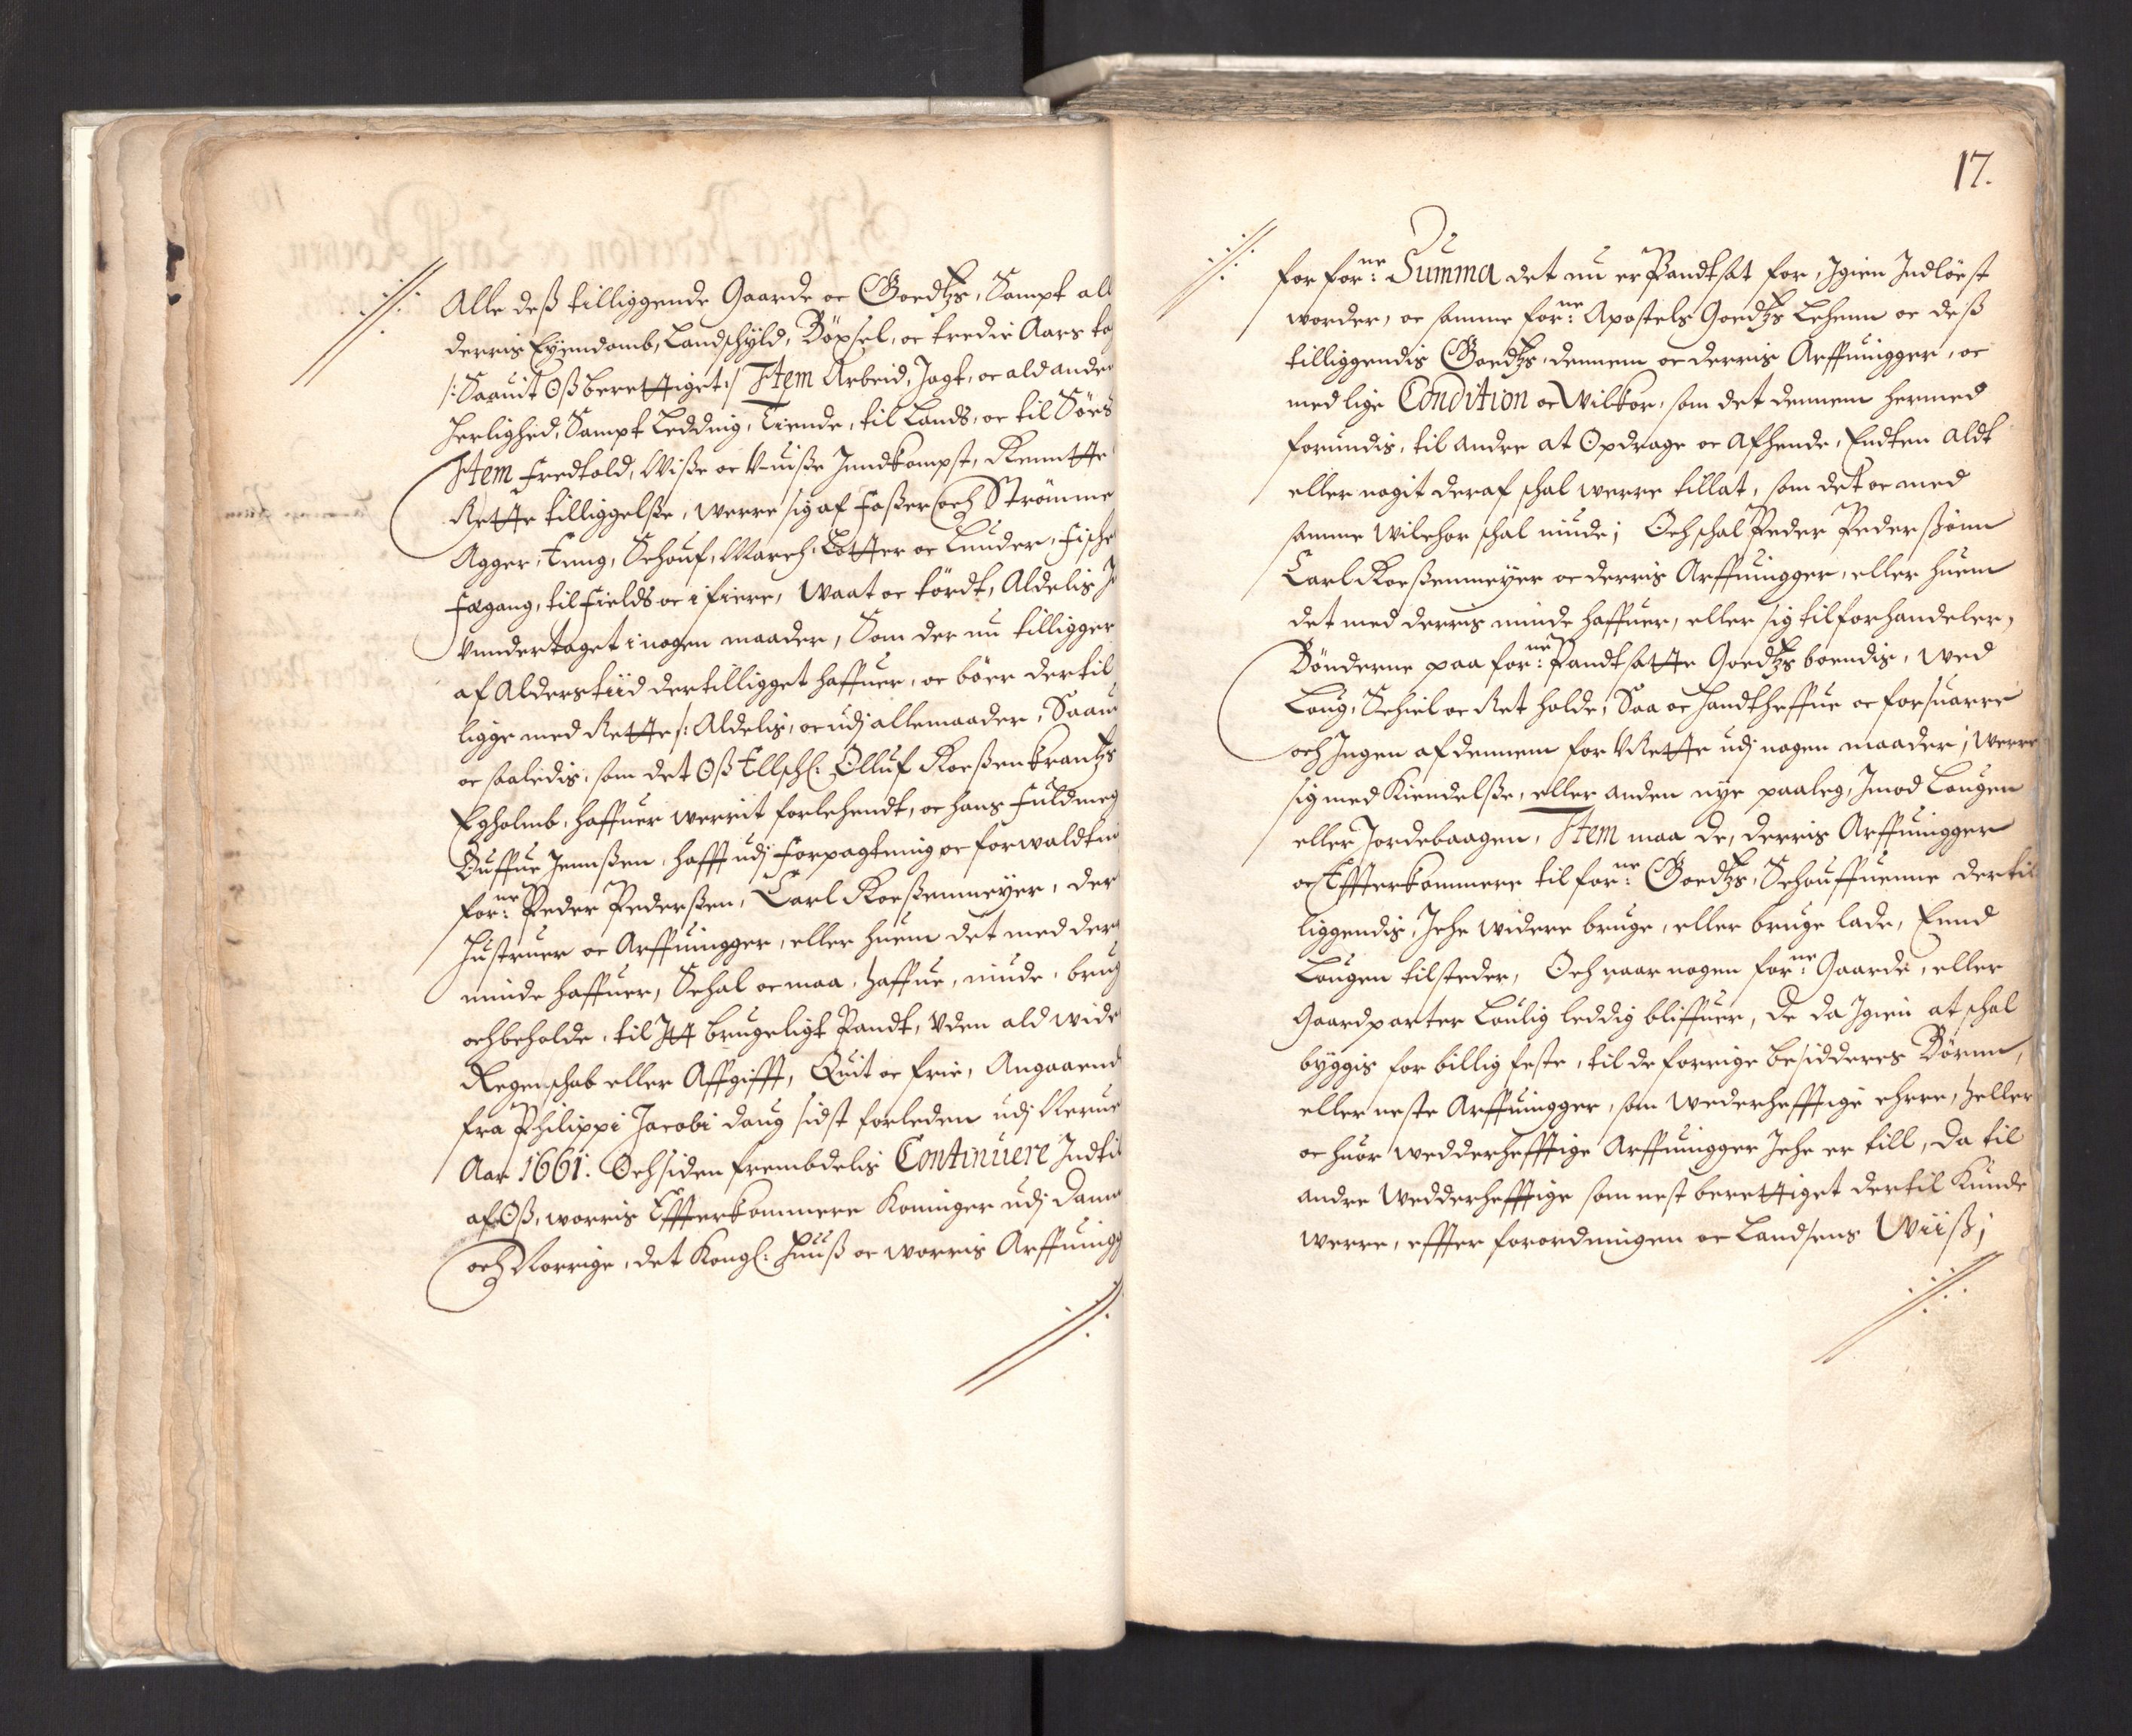 Alle deß tilliggende Gaarde oc Goedtzs, Sampt all
derris Eyendomb, Landschyld, Böxsel, oc tredie Aars
/: Saauit Oß berettiget :/ Item Arbeid, Jagt, oc ald anden
Herlighed, Sampt Ledding, Tiende, til Lands, oc til Söes
Item Fredtold, Wiße oc Vuiße Jndkompst, Renntte
Rette tilliggelße, werre sig af Foßer och Strömme
Agger, Eng, Schouf, March, Lotter oc Lunder, Fische
Fægang, til Fields oc i fiere, Waat oc tördt, Aldelis
Vundertaget i nogen maader, Som der nu tilligger
af Alders tiid dertilligget haffuer, oc böer dertil
ligge med Rette /: Aldelis, oc udj alle maader, Saau
oc saaledis, som det Oß Ellschl: Olluf Roeßenkrantzs
Egholmb, haffuer werrit forlehendt, oc hans Fuldmeg
Guffue Jennßen, hafft udj Forpagtning oc forwaldtni
forne: Peder Pederßen, Carl Roeßenmeyer, der
Hustruer oc Arffuingger, eller huem det med derris
minde haffuer, Schal oc maa, haffue, niude, brug
och beholde, til Jtt brugeligt Pandt, Uden ald wide
Regenschab eller Affgifft, Quit oc frie, Angaaend
fra Philippi Jacobi daug sidst forleden udj Nerue
Aar 1661. Och siden frembdelis Continuere Indtil
af Oß, worris Effterkommere Koninger udj Danm
och Norrige, det Kongl: Huuß oc worris Arffuingg
17.
for forne: Summa det nu er Pandtsat for, Jgien Jndlöest
worder, oc samme forne: Apostels Goedtzs Lehenn oc deß
tilliggendis Goedtzs, dennem oc derris Arffuingger, oc
med lige Condition oc Wilkor, som det dennem hermed
forundis, til andre at Opdrage oc Afhende, Endten aldt
eller nogit deraf schal werre tillat, som det oc med
samme Wilchor schal niude; Och schal Peder Pederßönn
Carl Roeßenmeyer oc derris Arffuingger, eller huem
det med derris minde haffuer, eller sig tilforhandeler,
Bönderne paa forne: Pandtsatte Goedtzs boendis, wed
Loug, Schiel oc Ret holde, Saa oc handtheffue oc forsuarre
och Jngen af dennem for Vrette udj nogen maader; werre
sig med Kiendelße, eller anden nye paaleg, Jmod Lougen
eller Jordebaagen, Item maa de, derris Arffuingger
oc Effterkommere til forne: Goedtzs, Schouffuenne dertil
liggendis, Jche widere bruge, eller bruge lade, End
Lougen tilsteder, Och naar nogen forne: Gaarde, eller
Gaardparter Loulig leddig bliffuer, De da Jgien at schal
byggis for billig feste, til de forrige besidderes Börnn,
eller neste Arffuingger, som wederhefftige ehrre, heller
oc huor wedderhefftige Arffuingger Jche er till, Da til
andre wedderhefftige som nest berettiget dertil Kunde
werre, effter forordningen oc Landsens Wiiß;